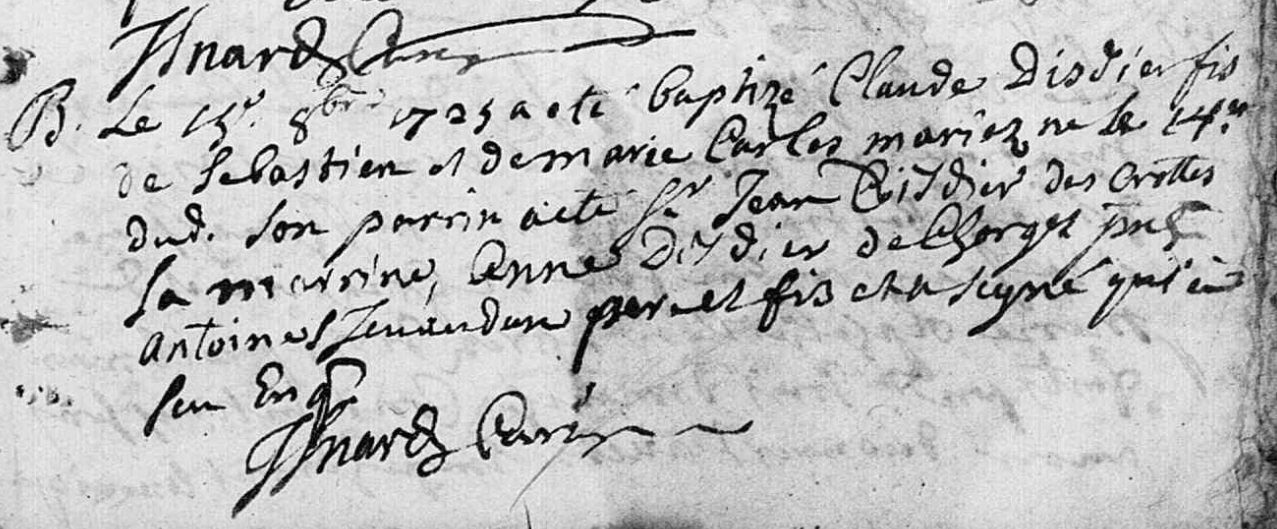 Isnard Curé
B. Le 15e 8bre 1725 a eté baptizé Claude Disdier fis
de Sebastien et de marie Carles mariez ne le 14me
dud. son parrin a eté Sr Jean Disdier des Crottes
la marrine, Anne Disdier de Chorges pnts
Antoine pere et fis et n'a signé qui a
seu Enq
Isnard Curé